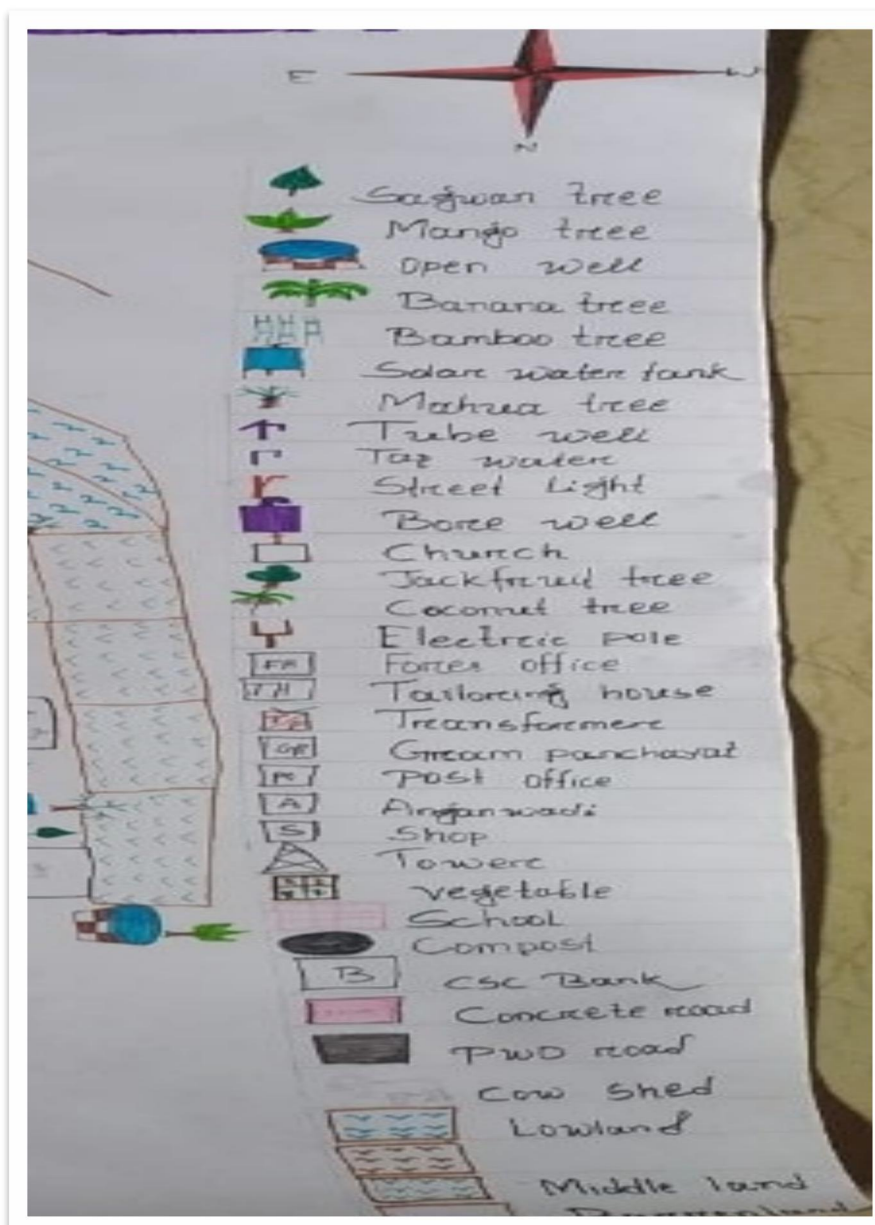 E W
N
Sagwan tree
Mango tree
Open well
Banana tree
Bamboo tree
Solar water tank
Mahua tree
Tube well
Tap water
Street Light
Bore well
Church
Jackfruit tree
Coconut tree
Electric pole
FR Forest office
TH Tailoring house
Transformer
GP Gream panchayat
PO Post office
A Anganwadi
S Shop
Tower
vegetable
School
Compost
B CSC Bank
Concrete road
PWD road
Cow Shed
Lowland
Middle land